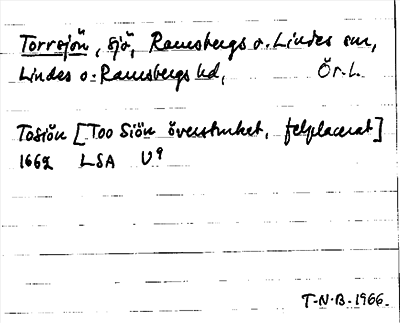 Torrsjön, sjö, Ramsbergs o. Lindes snr,
Lindes o. Ramsbergs hd, Ör. l.
Tosiön [Too Siön överstruket, felplacerat]
1662 LSA U9
T-N-B-1966-